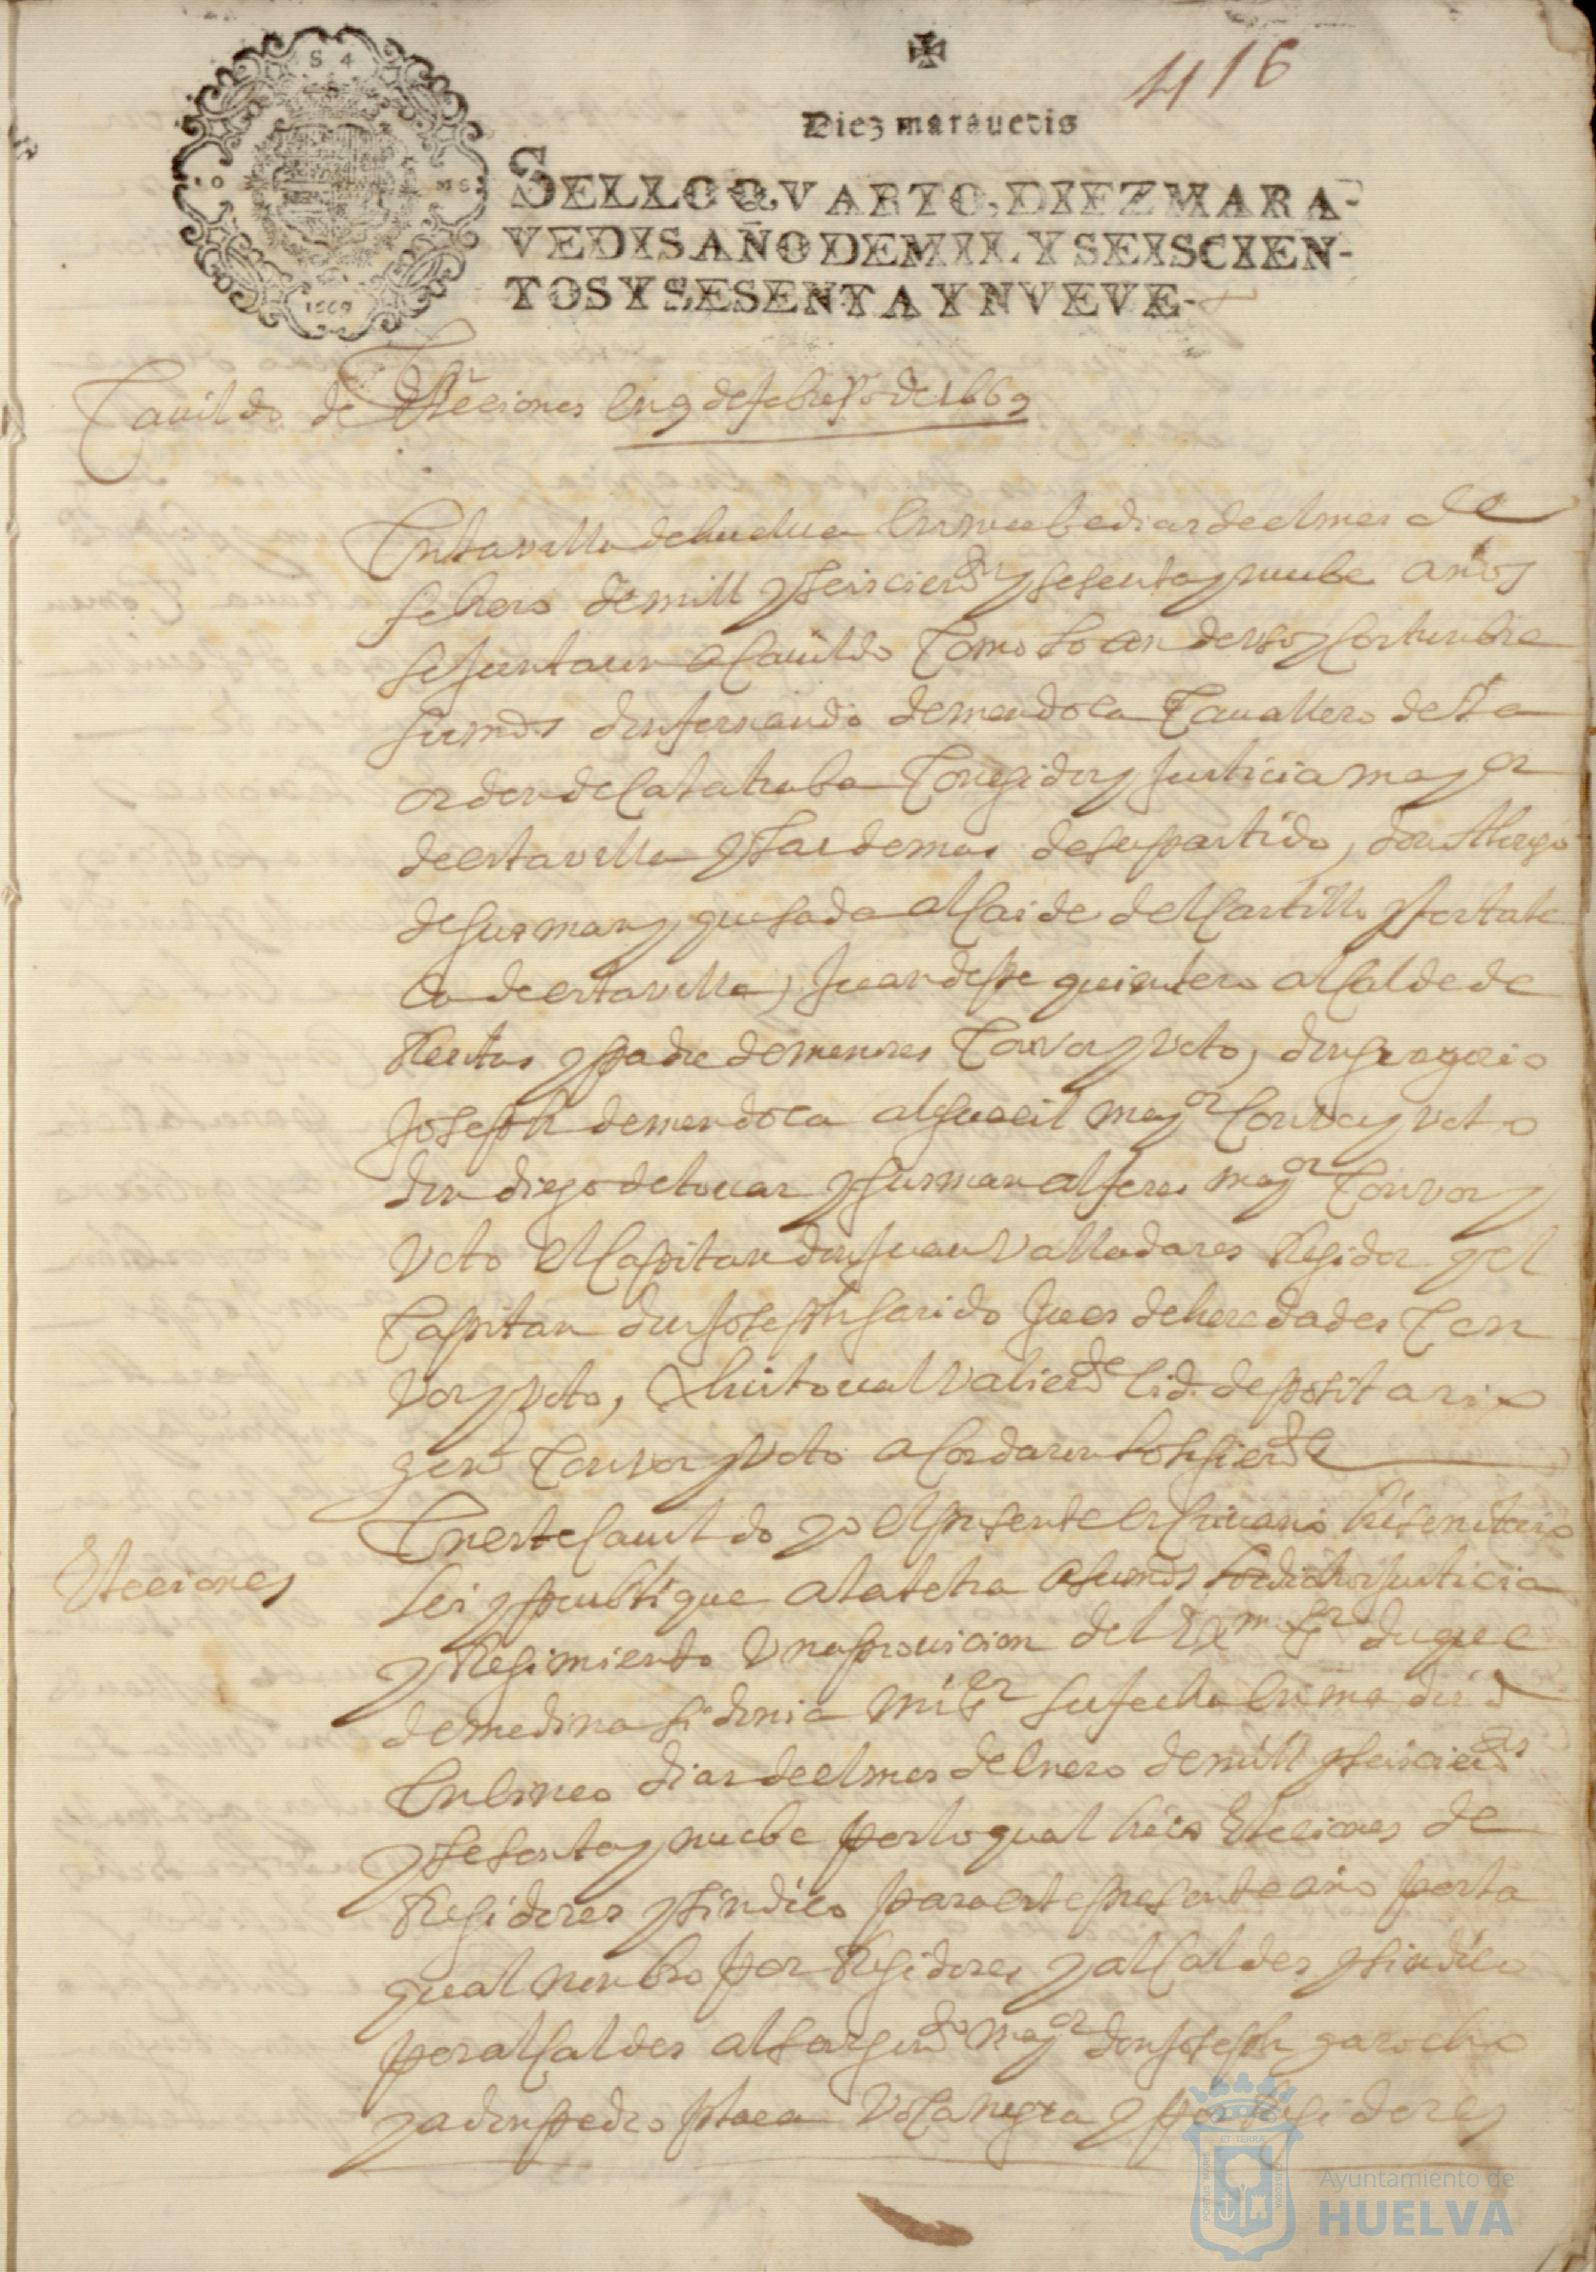 416
Diez marauedis
SELLO QVARTO, DIEZ MARA-
VEDIS AÑO DE MIL Y SEISCIEN-
TOS Y SESENTA Y NVEVE-
S 4
O
MS
1669
Cauildo de Eleciones en 9 de febrero de 1669
En la villa de huelua en nuebe dias de el mes de
febrero de mill y seiscientos y sesenta y nuebe años
se juntaron a Cauildo Como lo an de uso y costunbre
sus mds don fernando de mendoca Cauallero de la
orden de Calatraba Coregidor y justicia mayor
de esta villa y las demas de su partido, don
de gusman y quesada alcaide del Castillo y fortale
ca de esta villa, juan de quintero alcalde de
Rentas y padre de menores Con vos y voto, don gregorio
Joseph de mendoca alguacil mayor Con vos y voto
don diego de touar y gusman alferes mayor Con vos y
voto el Capitan don juan Valladares Regidor y el
Capitan don Joseph garido jues de heredades Con
vos y voto, Christoual Valiente depositario
genl Con vos y voto acordaron lo siguiente
Elecciones
En este Cauildo yo el presente escriuano
lei y publique a la letra a sus mds los dichos justicia
y Regimiento una prouicion del Exmo Sr duque
de medina sidonia mi sr su fecha en madrid
en cinco dias de el mes de enero de mill y seiscientos
y sesenta y nuebe por lo qual hico Eleciones de
Regidores y sindico para este presente año por la
qual nonbro por Regidores y alcaldes y sindico
por alcaldes al sargento mayor don Joseph garocho
y a don pedro placa Vocanegra y por Regidores
PORTUS MARIS
ET TERRAE
CUSTODIA
Ayuntamiento de
HUELVA